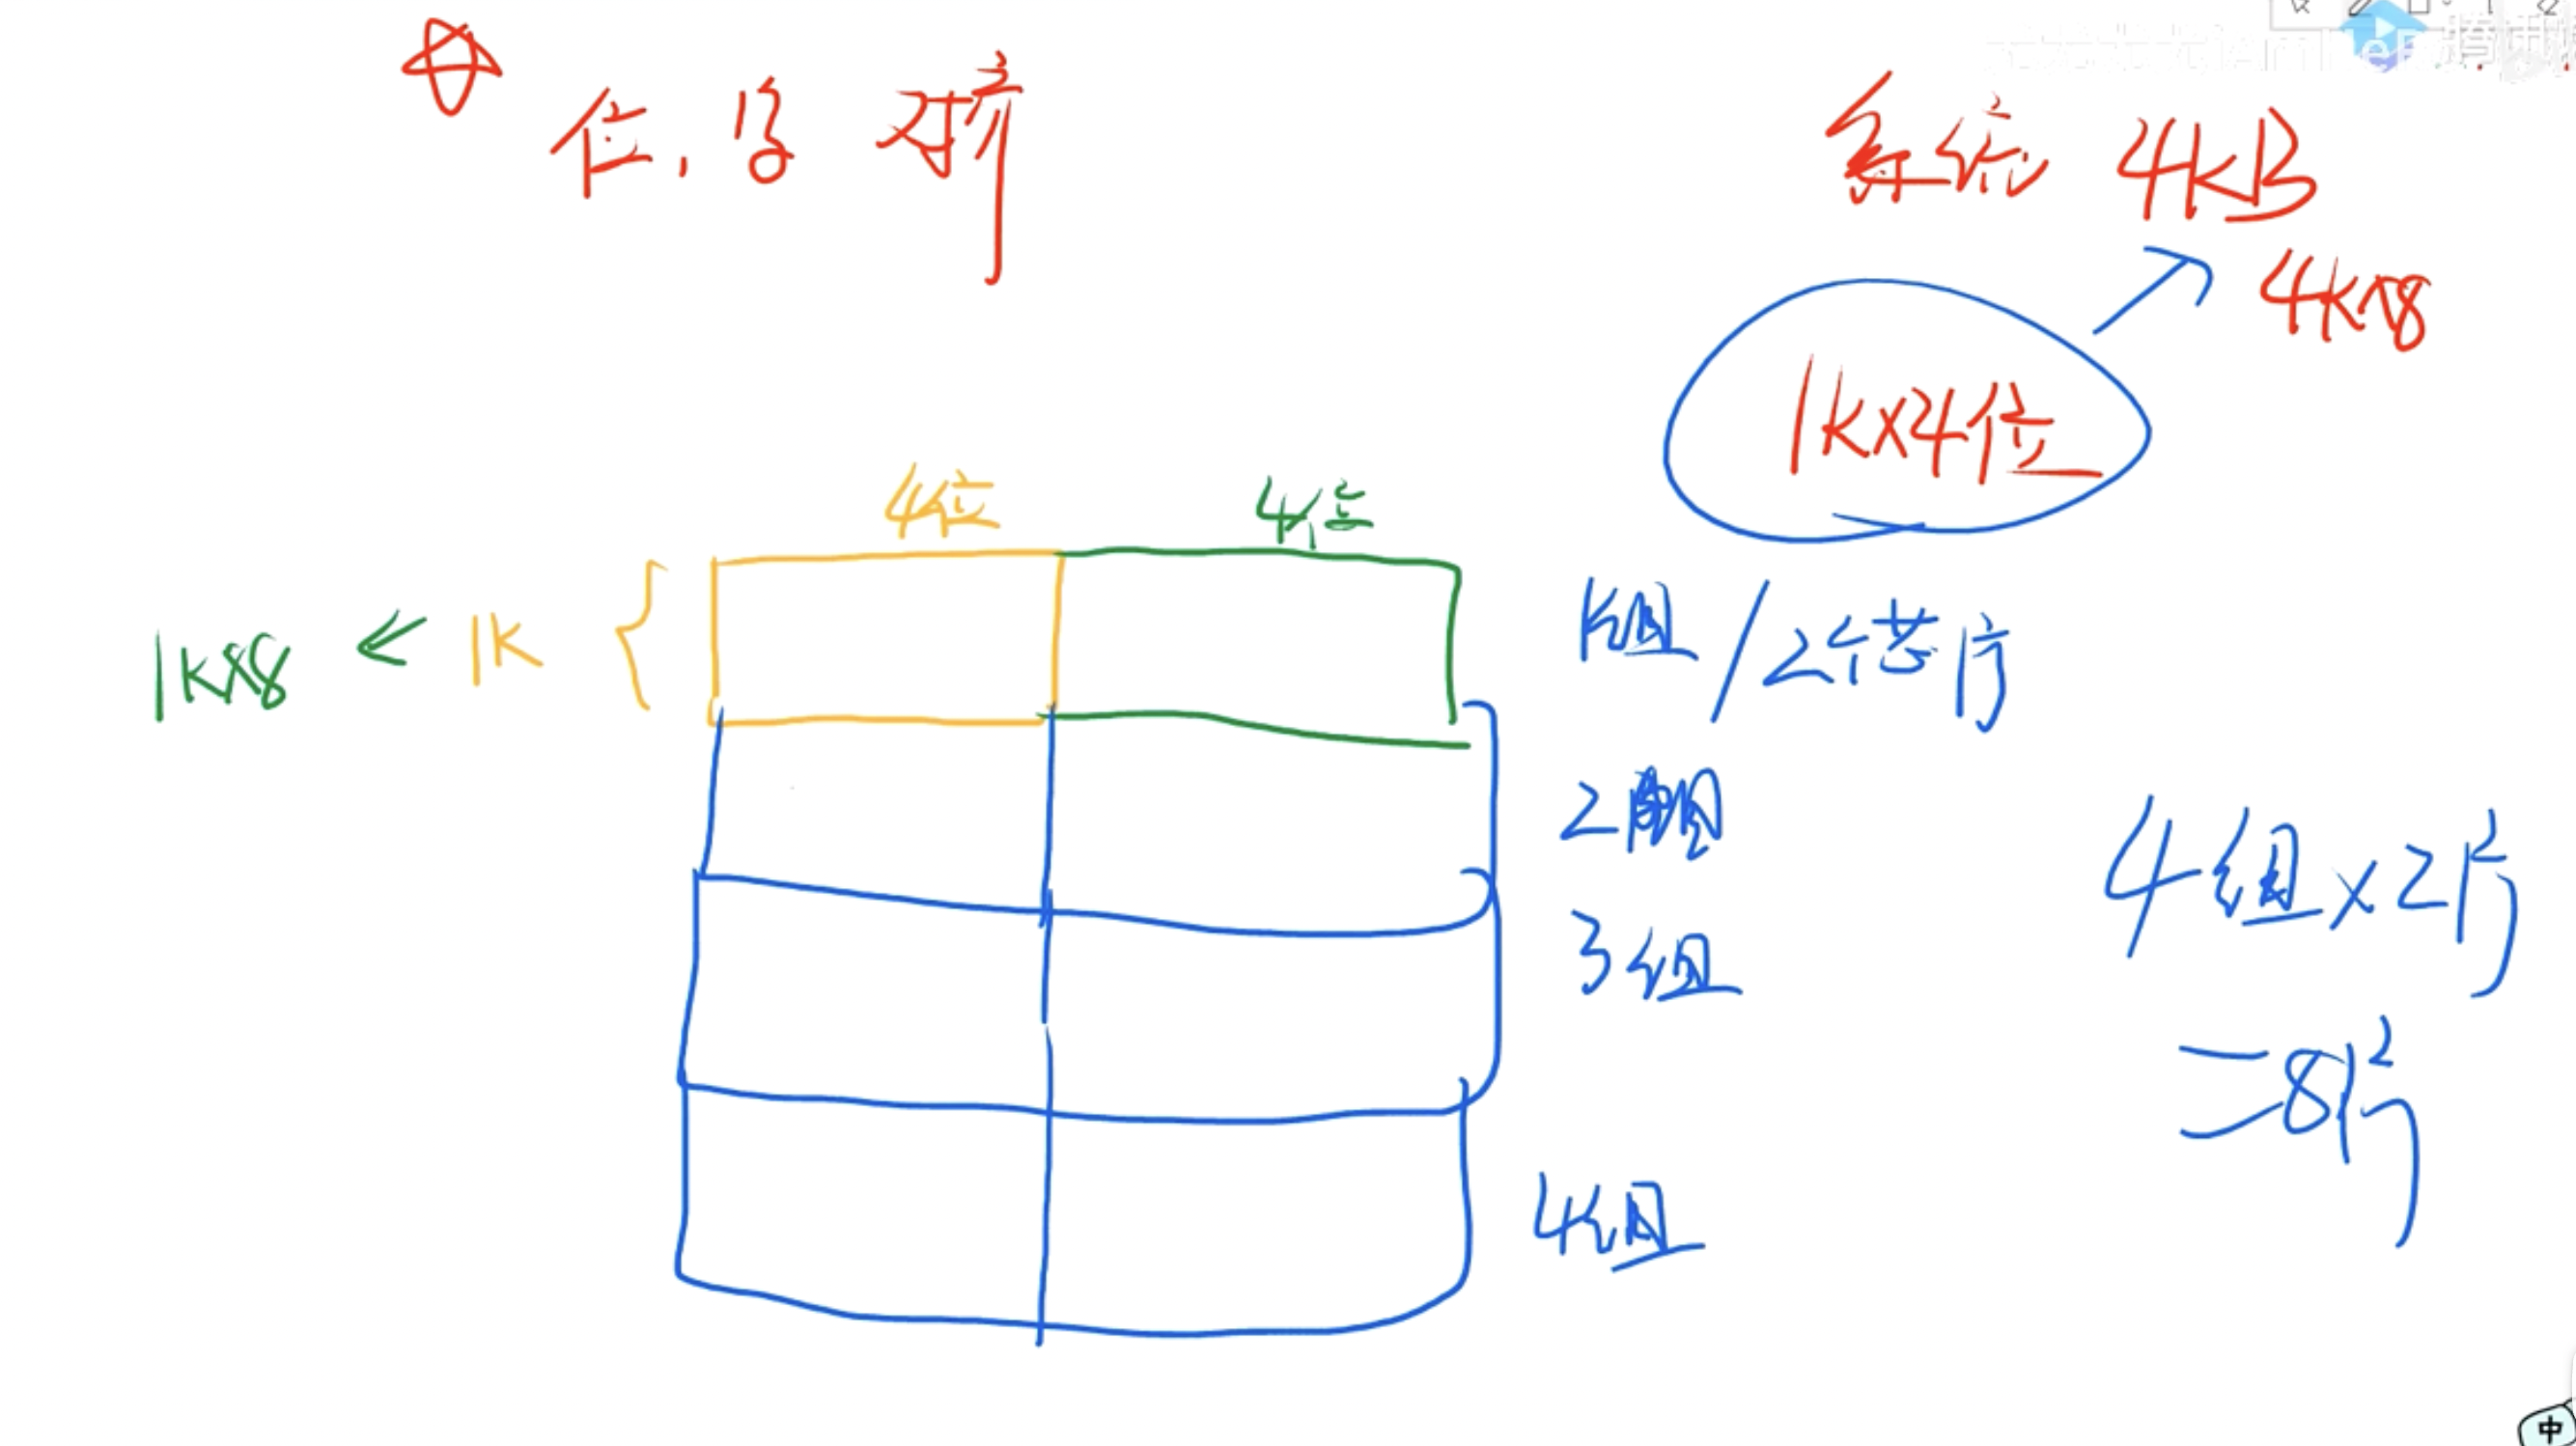 位，字 对齐
系统 4KB
4K×8
1K×4位
4位 4位
1K×8 ← 1K
1组/2个芯片
2组
3组
4组
4组×2片
=8片
中